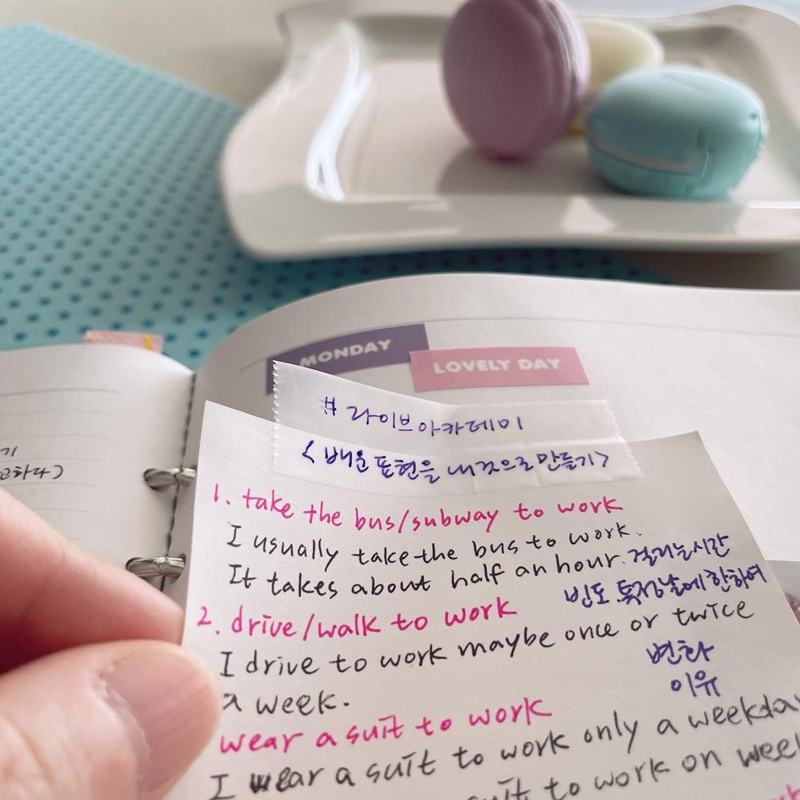 MONDAY
LOVELY DAY
# 라이브아카데미
<배운 표현을 내것으로 만들기>
1. take the bus/subway to work
I usually take the bus to work.
It takes about half an hour. 걸리는시간
빈도 특정날에 한하여
2. drive/walk to work
I drive to work maybe once or twice
a week.
변화
이유
wear a suit to work
I wear a suit to work only a weekday
suit to work on
고하다)